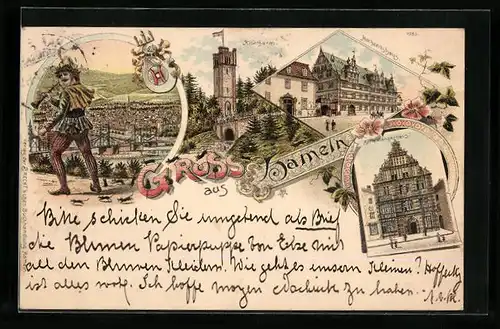 Klütturm
Gruss
aus
Hameln
Bitte schicken Sie umgehend als Brief
die Blumen Papierpuppe von Else mit
all den Blumen Kleidern. Wie geht es unsern Kleinen? Hoffentl.
ist alles wohl. Ich hoffe morgen Nachricht zu haben.